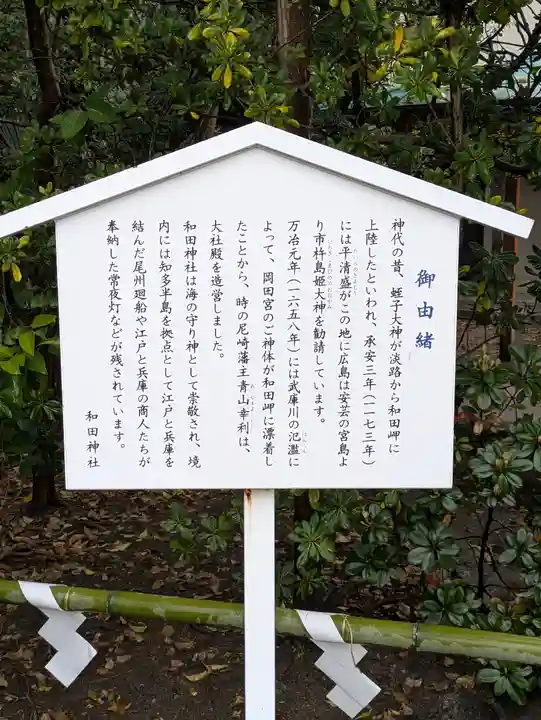 御由緒
神代の昔、蛭子大神が淡路から和田岬に
上陸したといわれ、承安三年(一一七三年)
には平清盛がこの地に広島は安芸の宮島よ
り市杵島姫大神を勧請しています。
万治元年(一六五八年)には武庫川の氾濫に
よって、岡田宮のご神体が和田岬に漂着し
たことから、時の尼崎藩主青山幸利は、
大社殿を造営しました。
和田神社は海の守り神として崇敬され、境
内には知多半島を拠点として江戸と兵庫を
結んだ尾州廻船や江戸と兵庫の商人たちが
奉納した常夜灯などが残されています。
和田神社